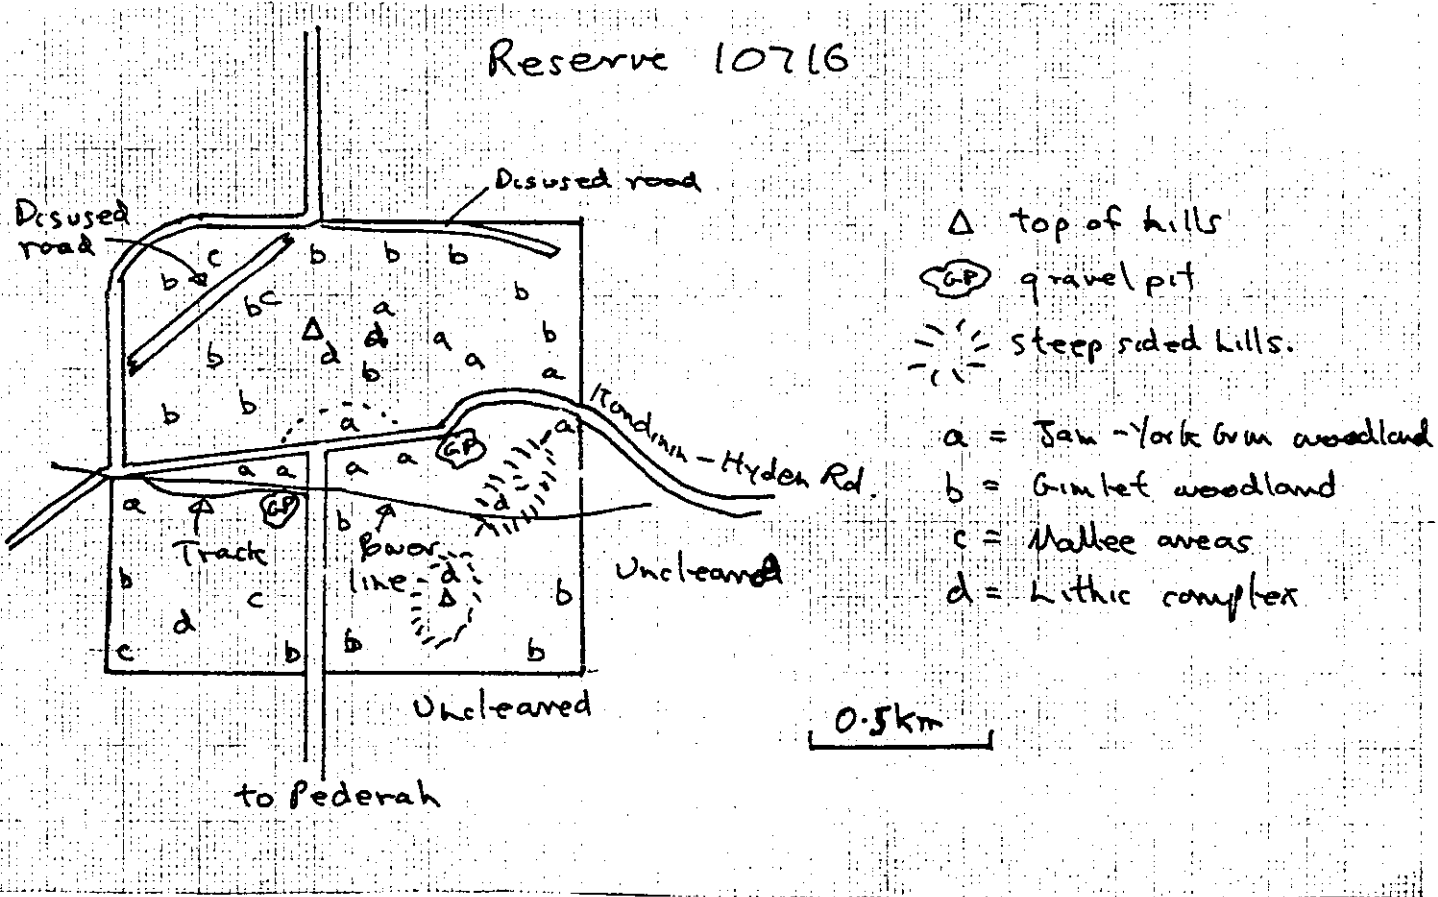 Reserve 10716
Disused road
Disused
road
c
b
b
b
b
b
b
c
a
d
a
b
d
b
a
b
b
a
b
b
a
a
Kondinin - Hyden Rd.
GP
a
a
a
a
a
GP
b
d
Track
Power
line
d
b
c
d
b
Uncleared
c
b
b
b
Uncleared
to Pederah
Δ top of hills
GP gravel pit
steep sided hills.
a = Jam - York Gum woodland
b = Gimlet woodland
c = Mallee areas
d = Lithic complex
0.5km